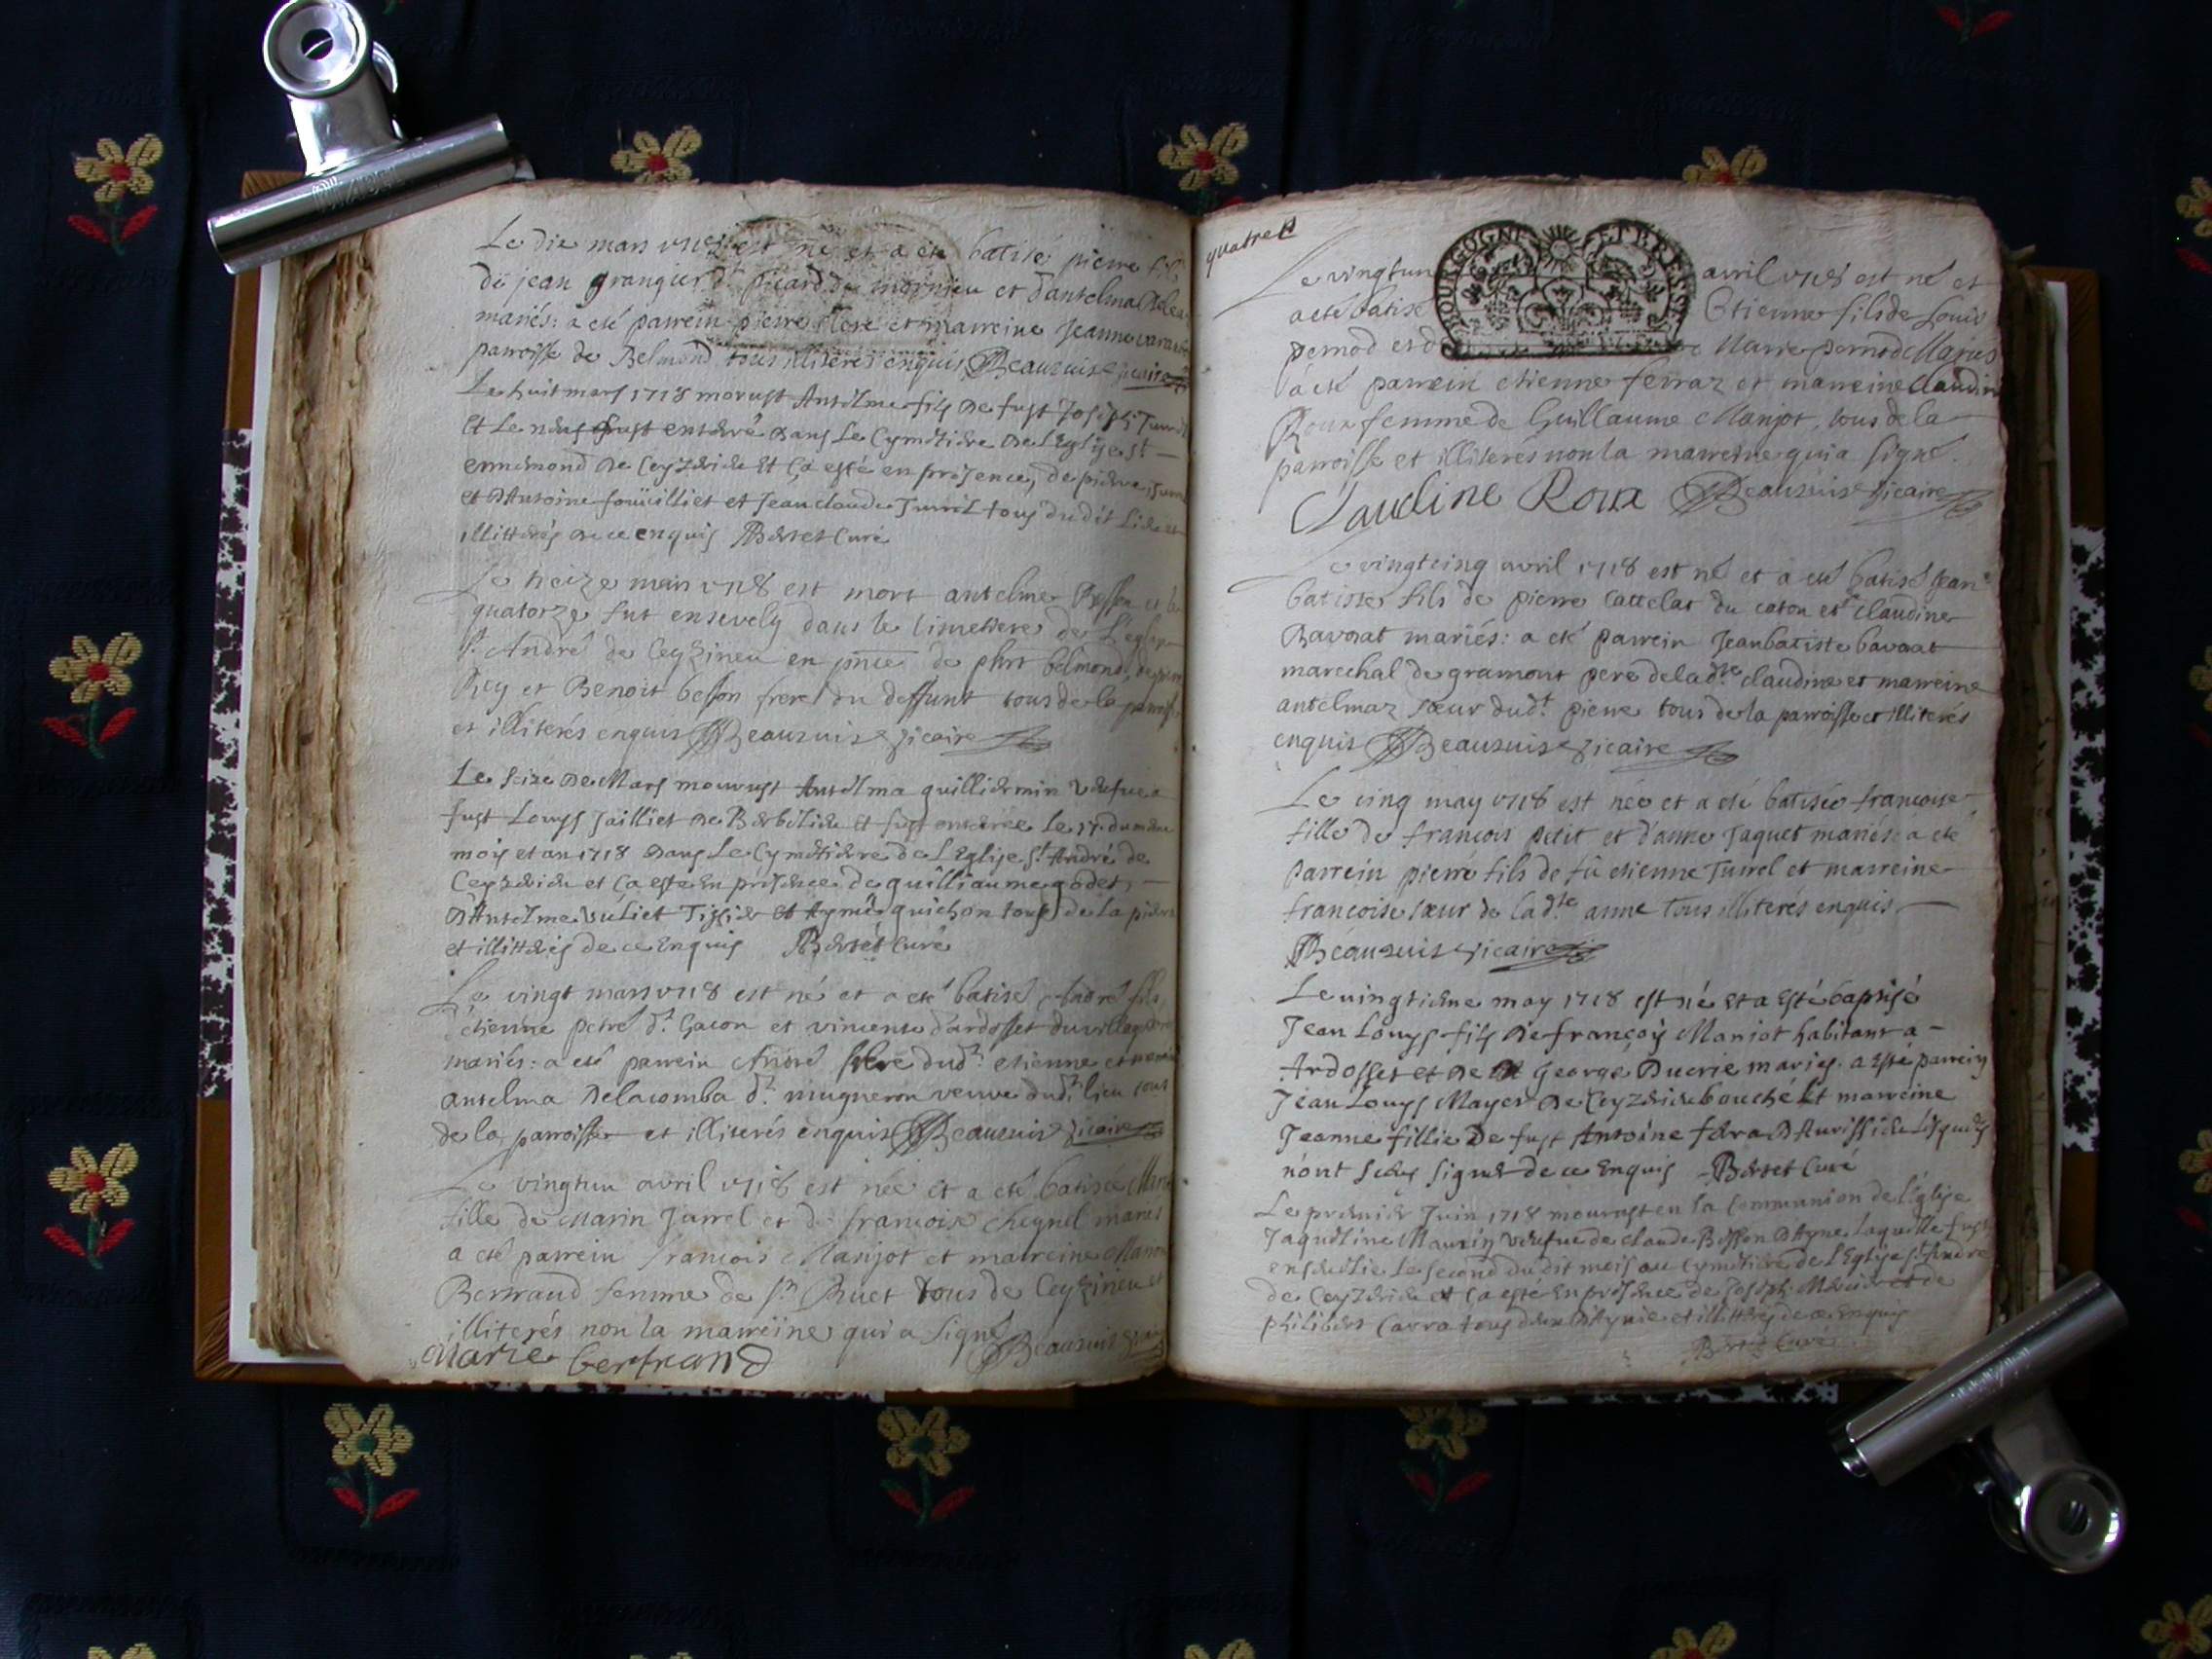 Le die mars 1718 est né et a eté batisé pierre fils
de jean grangier dt picard de mornieu et d'antelma
mariés: a eté parrein pierre et marreine Jeanne
parroisse de Belmond tous illiterés enquis Beauzuis vicaire
Le huit mars 1718 morust Antelme fils de fust Joseph Jurrel
Et Le neuf fust enterré dans Le Cymétiere de L'Eglise St
ennemond de Ceyzérieu Et ça esté en présence, de pierre
et d'Antoine foüilliet et Jean claude Jurrel tous du dit Lieu et
illittérés de ce enquis Bertet Curé
Le treize mars 1718 est mort antelme Besson et le
quatorze fut ensevely dans le Cimetiere de L'eglise
St André de Ceyzirieu en pnce de phrt belmond,
Rey et Benoit besson frere du deffunt tous de la parroisse
et illiterés enquis Beauzuis vicaire
Le seize de Mars mourust Antelma quilliermin vefue a
fust Louys Jailliet de Berbélieu et fust enterrée le 17 du mesme
mois et an 1718 dans Le Cymétiere de L'Eglise St André de
Ceyzérieu et ça esté en présence de quilliaume godet,
d'Antelme vuliet Tissier et Aymé guichon tous de la
et illittérés de ce enquis Bertet Curé
Le vingt mars 1718 est né et a eté batisé André fils
d'etienne petre dt Gacon et vincente d'ardosset du village
mariés: a eté parrein André frere dudt etienne et
antelma Delacomba dt mugneron veuve dudt lieu tous
de la parroisse et illiterés enquis Beauzuis vicaire
Le vingtun avril 1718 est née et a eté batisée
fille de Marin Jurrel et de francoise Cheynel mariés
a eté parrein francois Marijot et marreine
Bertrand femme de sr Ruet tous de Ceyzirieu et
illiterés non la marreine qui a signé Beauzuis
Marie bertrand
quatre
BOURGOGNE ET BRESSE
Le vingtun avril 1718 est né et
a eté batisé Etienne fils de Louis
pernod et Marie pernod Mariés
a eté parrein etienne ferraz et marreine Claudine
Roux femme de Guillaume Marijot, tous de la
parroisse et illiterés non la marreine qui a signé.
Claudine Roux Beauzuis vicaire
Le vingtcinq avril 1718 est né et a eté batisé Jean
batiste fils de pierre Cattelat du caton et claudine
Bavozat mariés: a eté parrein Jeanbatiste bavozat
marechal de gramont pere de ladte claudine et marreine
antelmaz sœur dudt pierre tous de la parroisse et illiterés
enquis Beauzuis vicaire
Le cinq may 1718 est née et a eté batisée francoise
fille de francois petit et d'anne Jaquet mariés: a eté
parrein pierre fils de fû etienne Jurrel et marreine
francoise sœur de ladte anne tous illiterés enquis
Beauzuis vicaire
Le uingtième may 1718 est né et a Esté baptisé
Jean Louys fils de françois Marijot habitant a
Ardosset et de George Ducrie mariés. a esté parrein
Jean Louys Mayer de Ceyzérieu bouché Et marreine
Jeanne fillie de fust Antoine féra d'Aurissieu
n'ont sceus signer de ce Enquis Bertet Curé
Le premier Juin 1718 mourust en la Communion de l'Eglise
Jaqueline Maurin vefue de claude Besson d'Ayne laquelle fust
ensevelie Le second du dit mois au Cymétiere de l'Eglise St André
de Ceyzérieu et ça esté En présence de Joseph et de
philibert Carra tous deux d'Aynie et illittérés de ce Enquis
Bertet Curé